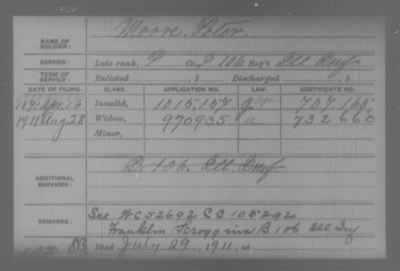 NAME OF SOLDIER: Moore, Peter.
SERVICE: Late rank, P Co. D 106 Reg't Ill Inf
TERM OF SERVICE: Enlisted , 1 Discharged , 1
DATE OF FILING. CLASS. APPLICATION NO. LAW. CERTIFICATE NO.
Apr. 16 Invalid, 1015.157 707.169
1911 Aug 28 Widow, 970935 a 732660
Minor,
ADDITIONAL SERVICES: B. 106. Ill. Inf
REMARKS: See WC 52692 CC
Franklin Scroggins B 106 Ill Inf
Died July 29, 1911, at